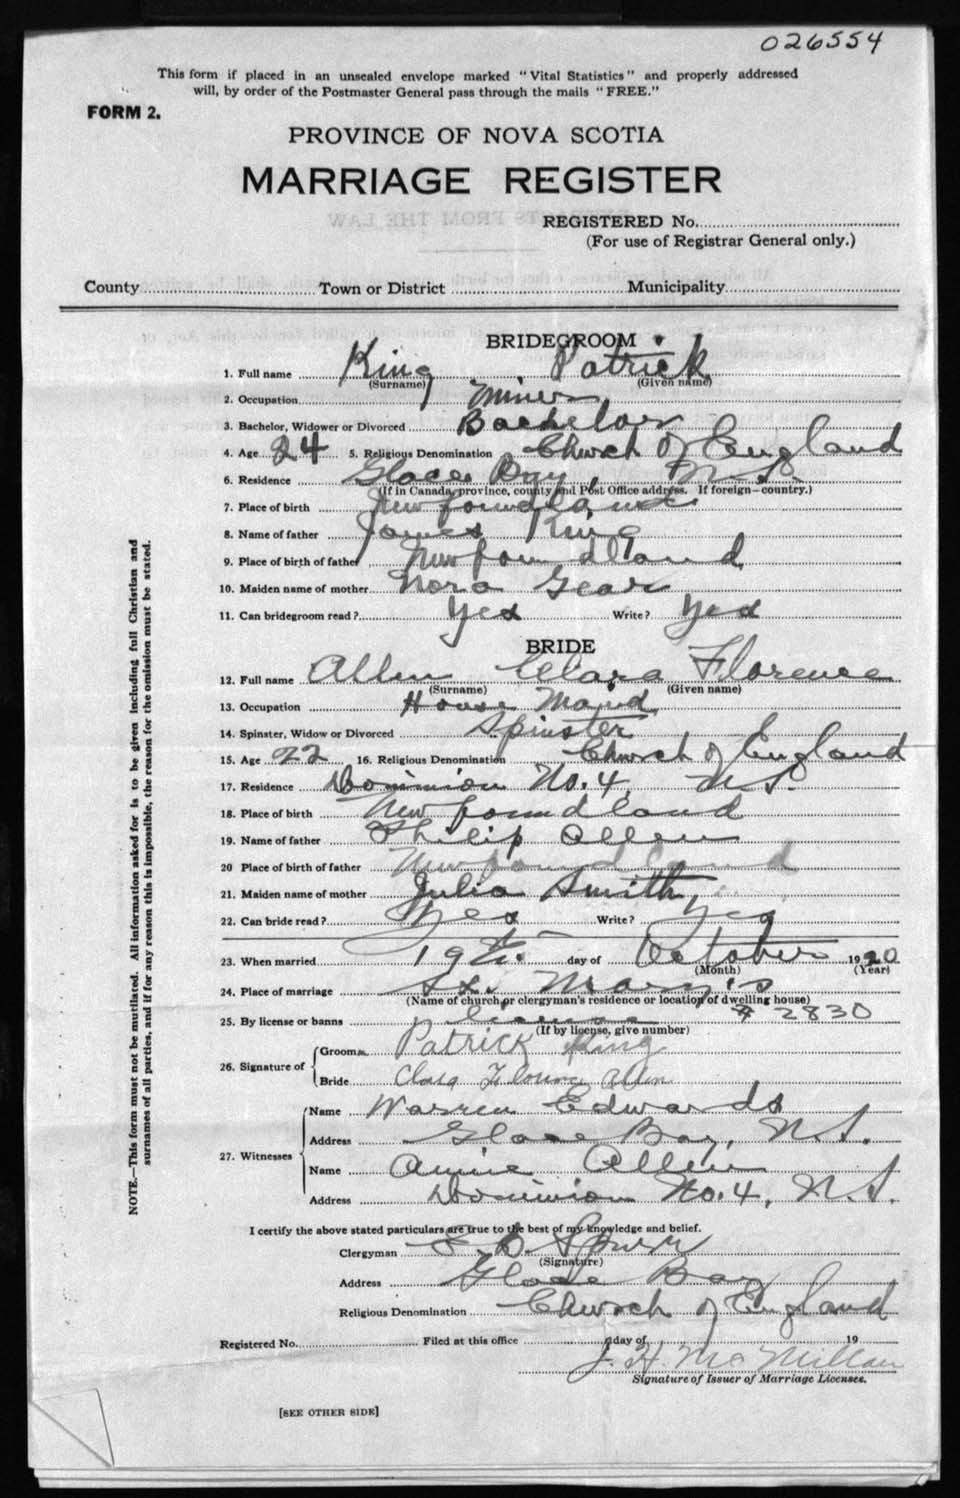 026554
This form if placed in an unsealed envelope marked "Vital Statistics" and properly addressed
will, by order of the Postmaster General pass through the mails "FREE."
FORM 2.
PROVINCE OF NOVA SCOTIA
MARRIAGE REGISTER
REGISTERED No.
(For use of Registrar General only.)
County Town or District Municipality
BRIDEGROOM
1. Full name King Patrick
(Surname) (Given name)
2. Occupation Miner
3. Bachelor, Widower or Divorced Bachelor
4. Age 24 5. Religious Denomination Church of England
6. Residence Glace Bay, N.S.
(If in Canada, province, county and Post Office address. If foreign—country.)
7. Place of birth Newfoundland
8. Name of father James King
9. Place of birth of father Newfoundland
10. Maiden name of mother Nora Gear
11. Can bridegroom read? Yes Write? Yes
BRIDE
12. Full name Allen Clara Florence
(Surname) (Given name)
13. Occupation House Maid
14. Spinster, Widow or Divorced Spinster
15. Age 22 16. Religious Denomination Church of England
17. Residence Dominion No. 4, N.S.
18. Place of birth Newfoundland
19. Name of father Philip Allen
20 Place of birth of father Newfoundland
21. Maiden name of mother Julia Smith
22. Can bride read? Yes Write? Yes
23. When married 19th day of October 1920
(Month) (Year)
24. Place of marriage St. Mary's
(Name of church or clergyman's residence or location of dwelling house)
25. By license or banns license # 2830
(If by license, give number)
26. Signature of
Groom Patrick King
Bride Clara Florence Allen
27. Witnesses
Name Warren Edwards
Address Glace Bay, N.S.
Name Annie Allen
Address Dominion No. 4, N.S.
I certify the above stated particulars are true to the best of my knowledge and belief.
Clergyman
(Signature)
Address Glace Bay
Religious Denomination Church of England
Registered No. Filed at this office day of 19
J. H. McMillan
Signature of Issuer of Marriage Licenses.
[SEE OTHER SIDE]
NOTE.—This form must not be mutilated. All information asked for is to be given including full Christian and
surnames of all parties, and if for any reason this is impossible, the reason for the omission must be stated.